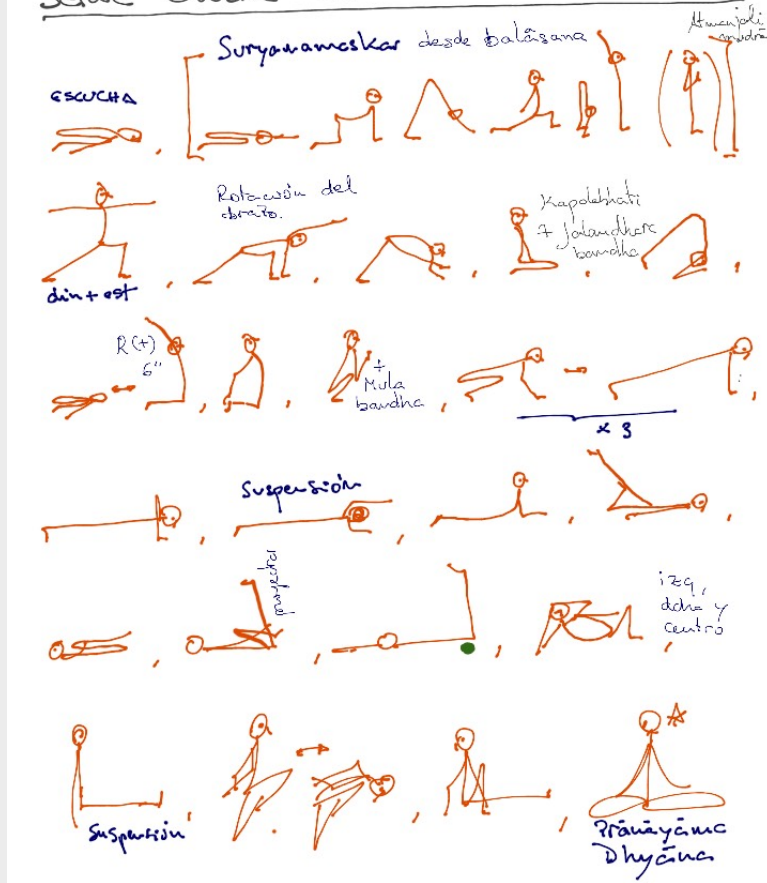 Suryanamaskar desde balāsana
Atmanjali
mudrā
ESCUCHA
Rotación del
brazo.
Kapalabhati
+ Jalandhara
bandha
din + est
R(+)
6"
+
Mula
bandha
x 3
Suspensión
proyecto
izq,
dcha y
centro
Suspensión
Prānāyāma
Dhyāna